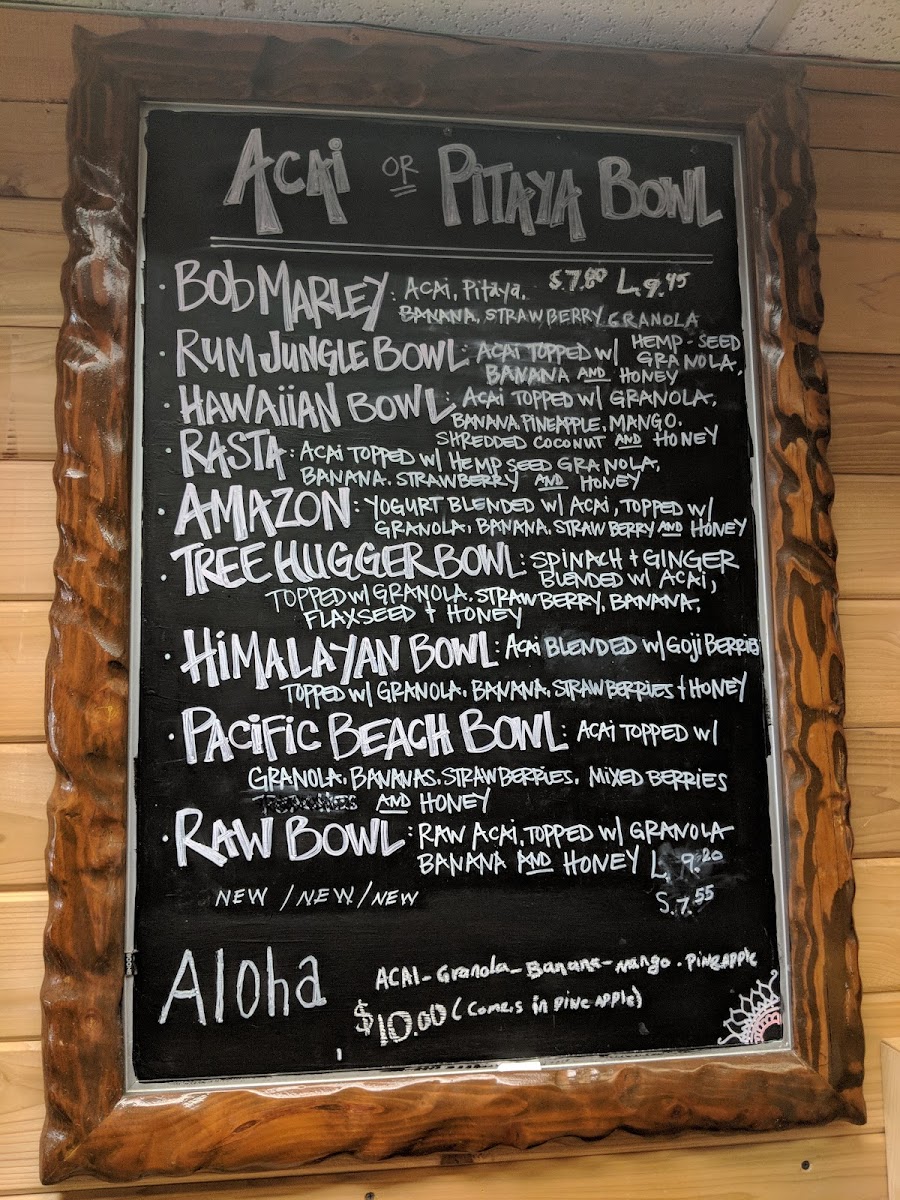 ACAI OR PITAYA BOWL
• BOB MARLEY: ACAI, PITAYA, $7.80 L.9.45
BANANA, STRAWBERRY GRANOLA
• RUM JUNGLE BOWL: ACAI TOPPED W/ HEMP-SEED GRANOLA,
BANANA AND HONEY
• HAWAIIAN BOWL: ACAI TOPPED W/ GRANOLA,
BANANA PINEAPPLE, MANGO,
SHREDDED COCONUT AND HONEY
• RASTA: ACAI TOPPED W/ HEMP SEED GRANOLA,
BANANA, STRAWBERRY AND HONEY
• AMAZON: YOGURT BLENDED W/ ACAI, TOPPED W/
GRANOLA, BANANA, STRAWBERRY AND HONEY
• TREE HUGGER BOWL: SPINACH + GINGER
BLENDED W/ ACAI,
TOPPED W/ GRANOLA, STRAWBERRY, BANANA,
FLAXSEED + HONEY
• HIMALAYAN BOWL: ACAI BLENDED W/ GOJI BERRIES
TOPPED W/ GRANOLA, BANANA, STRAWBERRIES + HONEY
• PACIFIC BEACH BOWL: ACAI TOPPED W/
GRANOLA, BANANAS, STRAWBERRIES, MIXED BERRIES
AND HONEY
• RAW BOWL: RAW ACAI, TOPPED W/ GRANOLA
BANANA AND HONEY L. 9.20
NEW / NEW / NEW S. 7.55
Aloha ACAI - Granola - Banana - mango - Pineapple
$10.00 (Comes in pineapple)